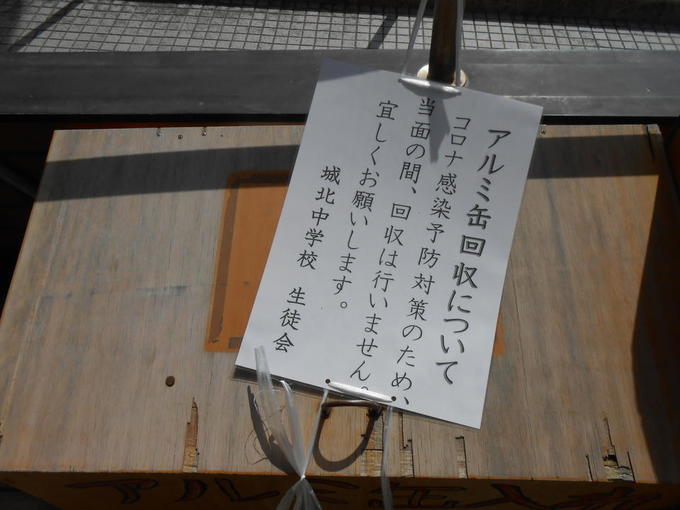 アルミ缶回収について
コロナ感染予防対策のため、
当面の間、回収は行いません。
宜しくお願いします。
城北中学校　生徒会
アルミ缶入れ